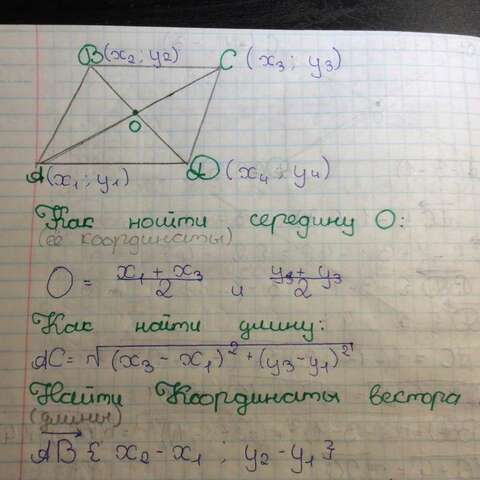 B(x₂; y₂) C (x₃; y₃)
O
A(x₁; y₁) D (x₄; y₄)
Как нойти середину O:
(её координаты)
O = x₁ + x₃ / 2 и y₁ + y₃ / 2
Как найти длину:
AC = √(x₃ - x₁)² + (y₃ - y₁)²
Найти Координаты вектора
(длины)
AB { x₂ - x₁ ; y₂ - y₁ }